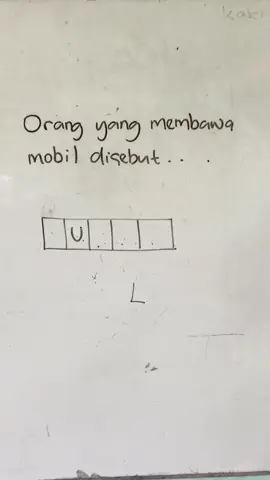 Orang yang membawa
mobil disebut . . .
U
L